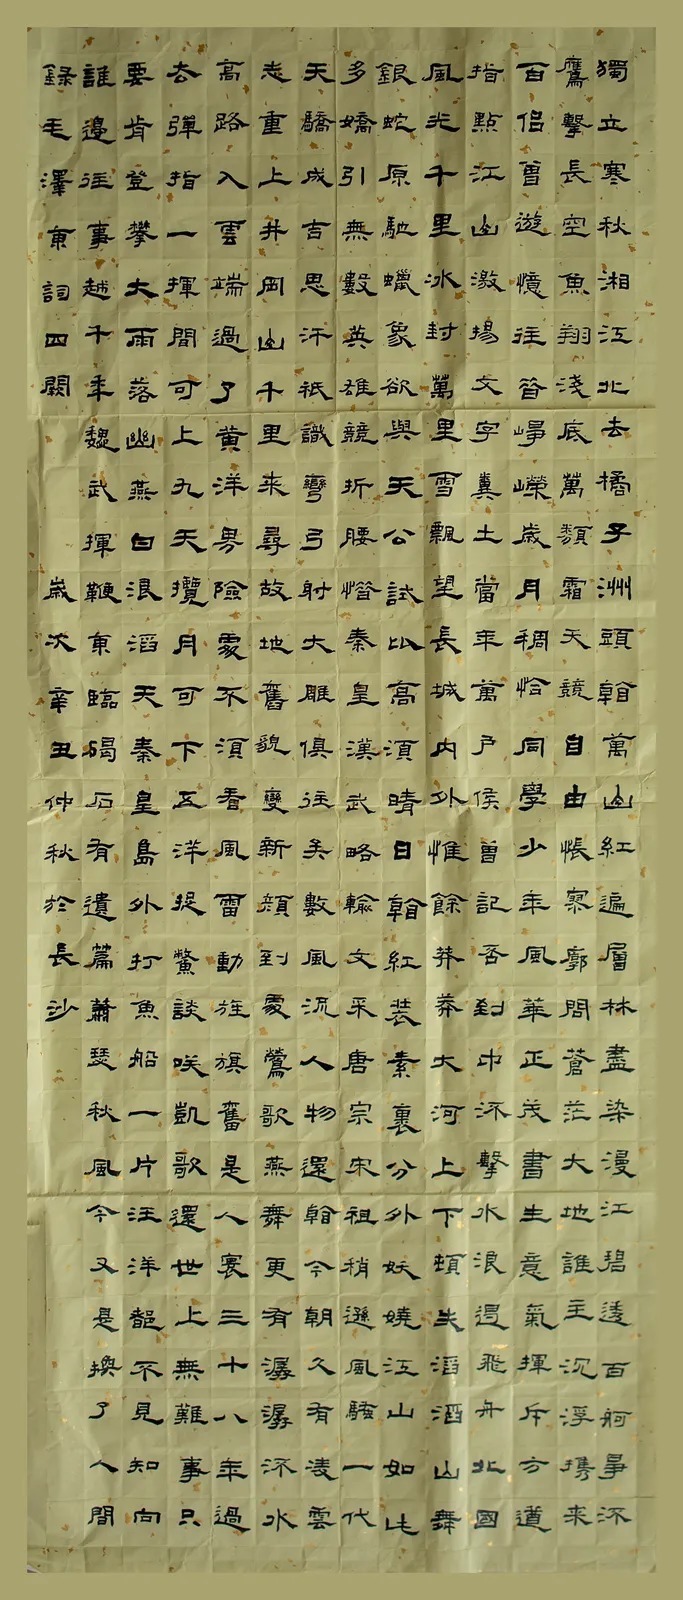 獨立寒秋湘江北去橘子洲頭看萬山紅遍層林盡染漫江碧透百舸爭流
鷹擊長空魚翔淺底萬類霜天競自由悵寥廓問蒼茫大地誰主沉浮攜來
百侶曾遊憶往昔崢嶸歲月稠恰同學少年風華正茂書生意氣揮斥方遒
指點江山激揚文字糞土當年萬戶侯曾記否到中流擊水浪遏飛舟北國
風光千里冰封萬里雪飄望長城內外惟餘莽莽大河上下頓失滔滔山舞
銀蛇原馳蠟象欲與天公試比高須晴日看紅裝素裹分外妖嬈江山如此
多嬌引無數英雄競折腰惜秦皇漢武略輸文采唐宗宋祖稍遜風騷一代
天驕成吉思汗祇識彎弓射大雕俱往矣數風流人物還看今朝久有凌雲
志重上井岡山千里來尋故地舊貌變新顏到處鶯歌燕舞更有潺潺流水
高路入雲端過了黃洋界險處不須看風雷動旌旗奮是人寰三十八年過
去彈指一揮間可上九天攬月可下五洋捉鱉談笑凱歌還世上無難事只
要肯登攀大雨落幽燕白浪滔天秦皇島外打魚船一片汪洋都不見知向
誰邊往事越千年魏武揮鞭東臨碣石有遺篇蕭瑟秋風今又是換了人間
錄毛澤東詞四闋 歲次辛丑仲秋於長沙